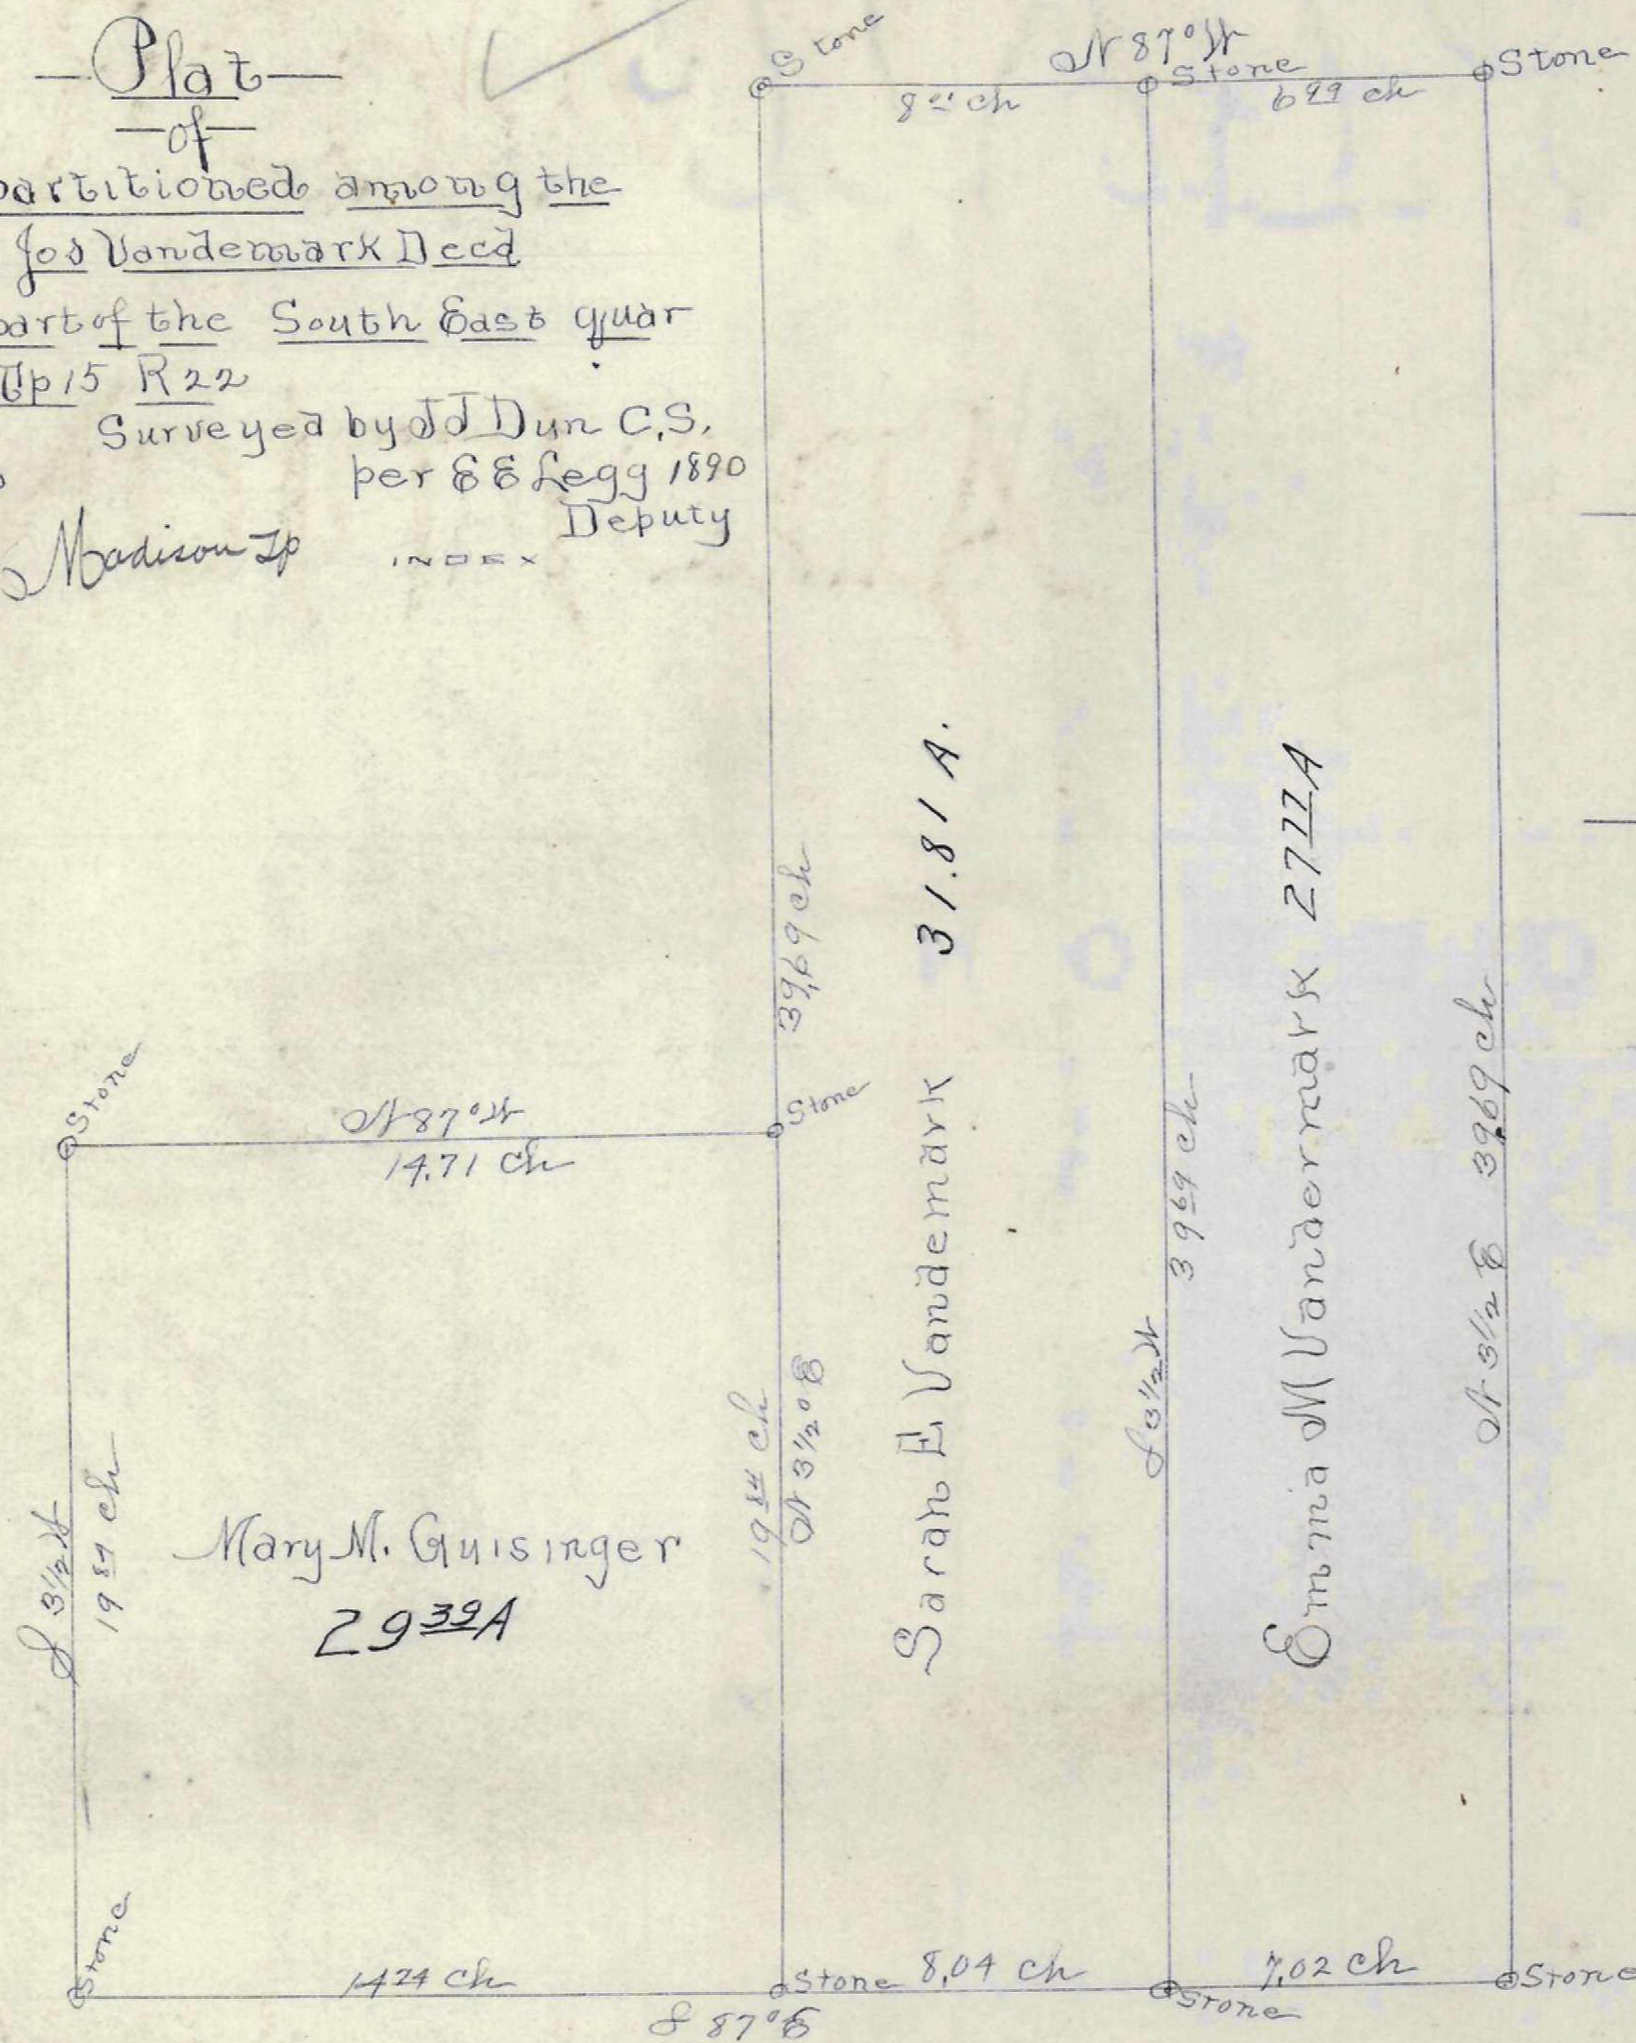 Plat
of
partitioned among the
Jos Vandemark Decd
part of the South East quar
Tp 15 R 22
Surveyed by JJ Dun C.S.
per EE Legg 1890
Deputy
Madison Tp
INDEX
Stone
N 87° W
Stone
Stone
8 ch
6 99 ch
39,69 ch
Sarah E Vandemark 31.81 A.
S 3 1/2 W
39 69 ch
Emma M Vandermark 27 77 A
N 3 1/2 E 39,69 ch
Stone
N 87° W
14.71 ch
Stone
S 3 1/2 W
19 84 ch
Mary M. Guisinger
29 39 A
19 84 ch
N 3 1/2° E
Stone
14 74 ch
Stone
8,04 ch
Stone
7,02 ch
Stone
S 87° E